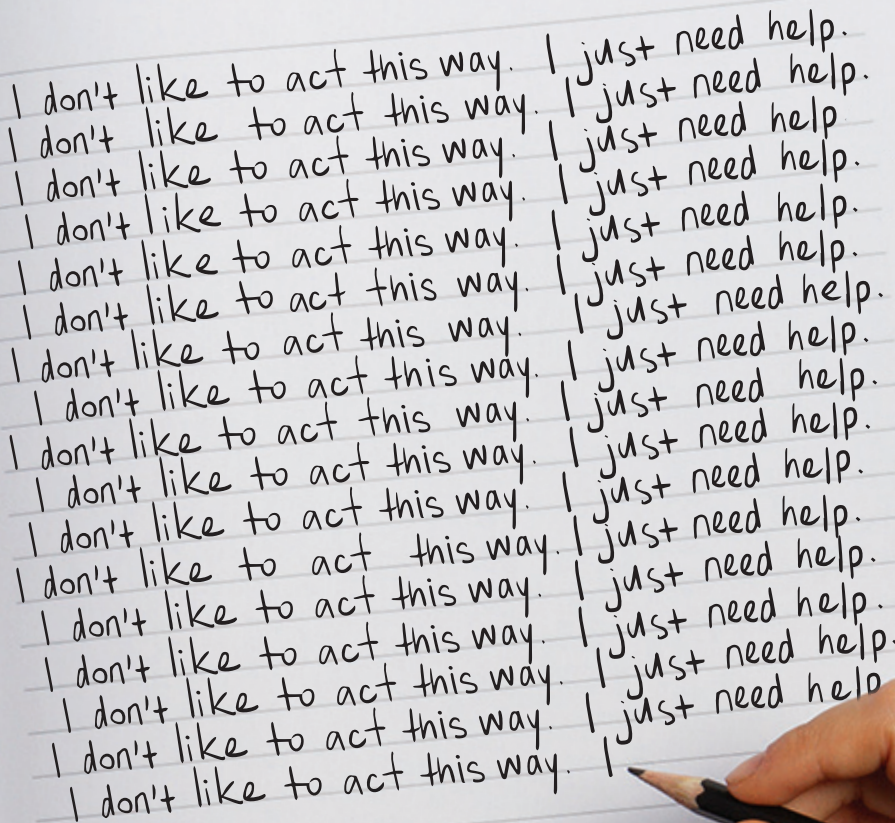 I don't like to act this way. I just need help.
I don't like to act this way. I just need help.
I don't like to act this way. I just need help
I don't like to act this way. I just need help.
I don't like to act this way. I just need help.
I don't like to act this way. I just need help.
I don't like to act this way. I just need help.
I don't like to act this way. I just need help.
I don't like to act this way. I just need help.
I don't like to act this way. I just need help.
I don't like to act this way. I just need help.
I don't like to act this way. I just need help.
I don't like to act this way. I just need help.
I don't like to act this way. I just need help.
I don't like to act this way. I just need help.
I don't like to act this way. I just need help
I don't like to act this way. I